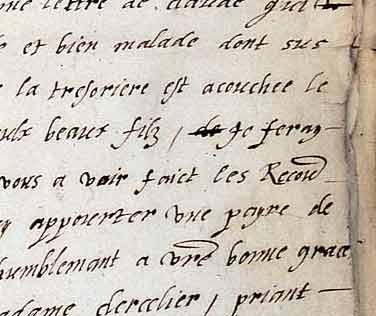 lettre de claude
et bien malade dont sus
la tresoriere est acouchee le
beaux filz, de Je feray
vous a vair faict les Recom
appoierter une payre de
humblemant a vre bonne grace
priant